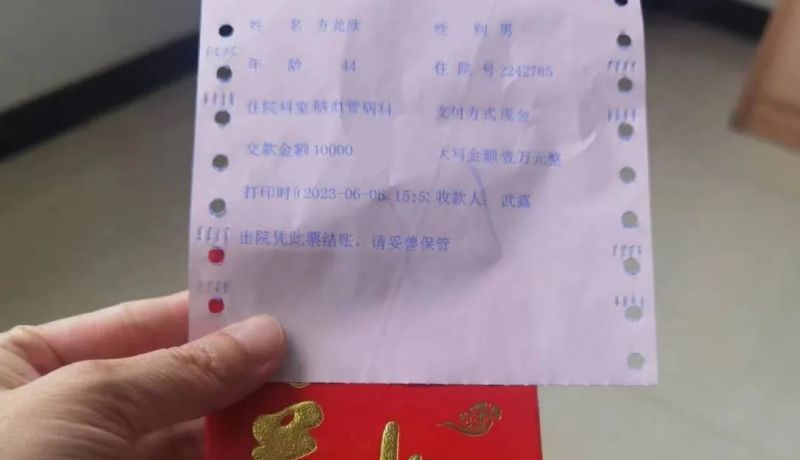 姓 名 方龙欣 性 别 男
年 龄 44 住 院 号 2242785
住院科室 脑血管病科 支付方式 现金
交款金额 10000 大写金额 壹万元整
打印时 2023-06-06 15:5 收款人 武露
出院凭此票结账，请妥善保管